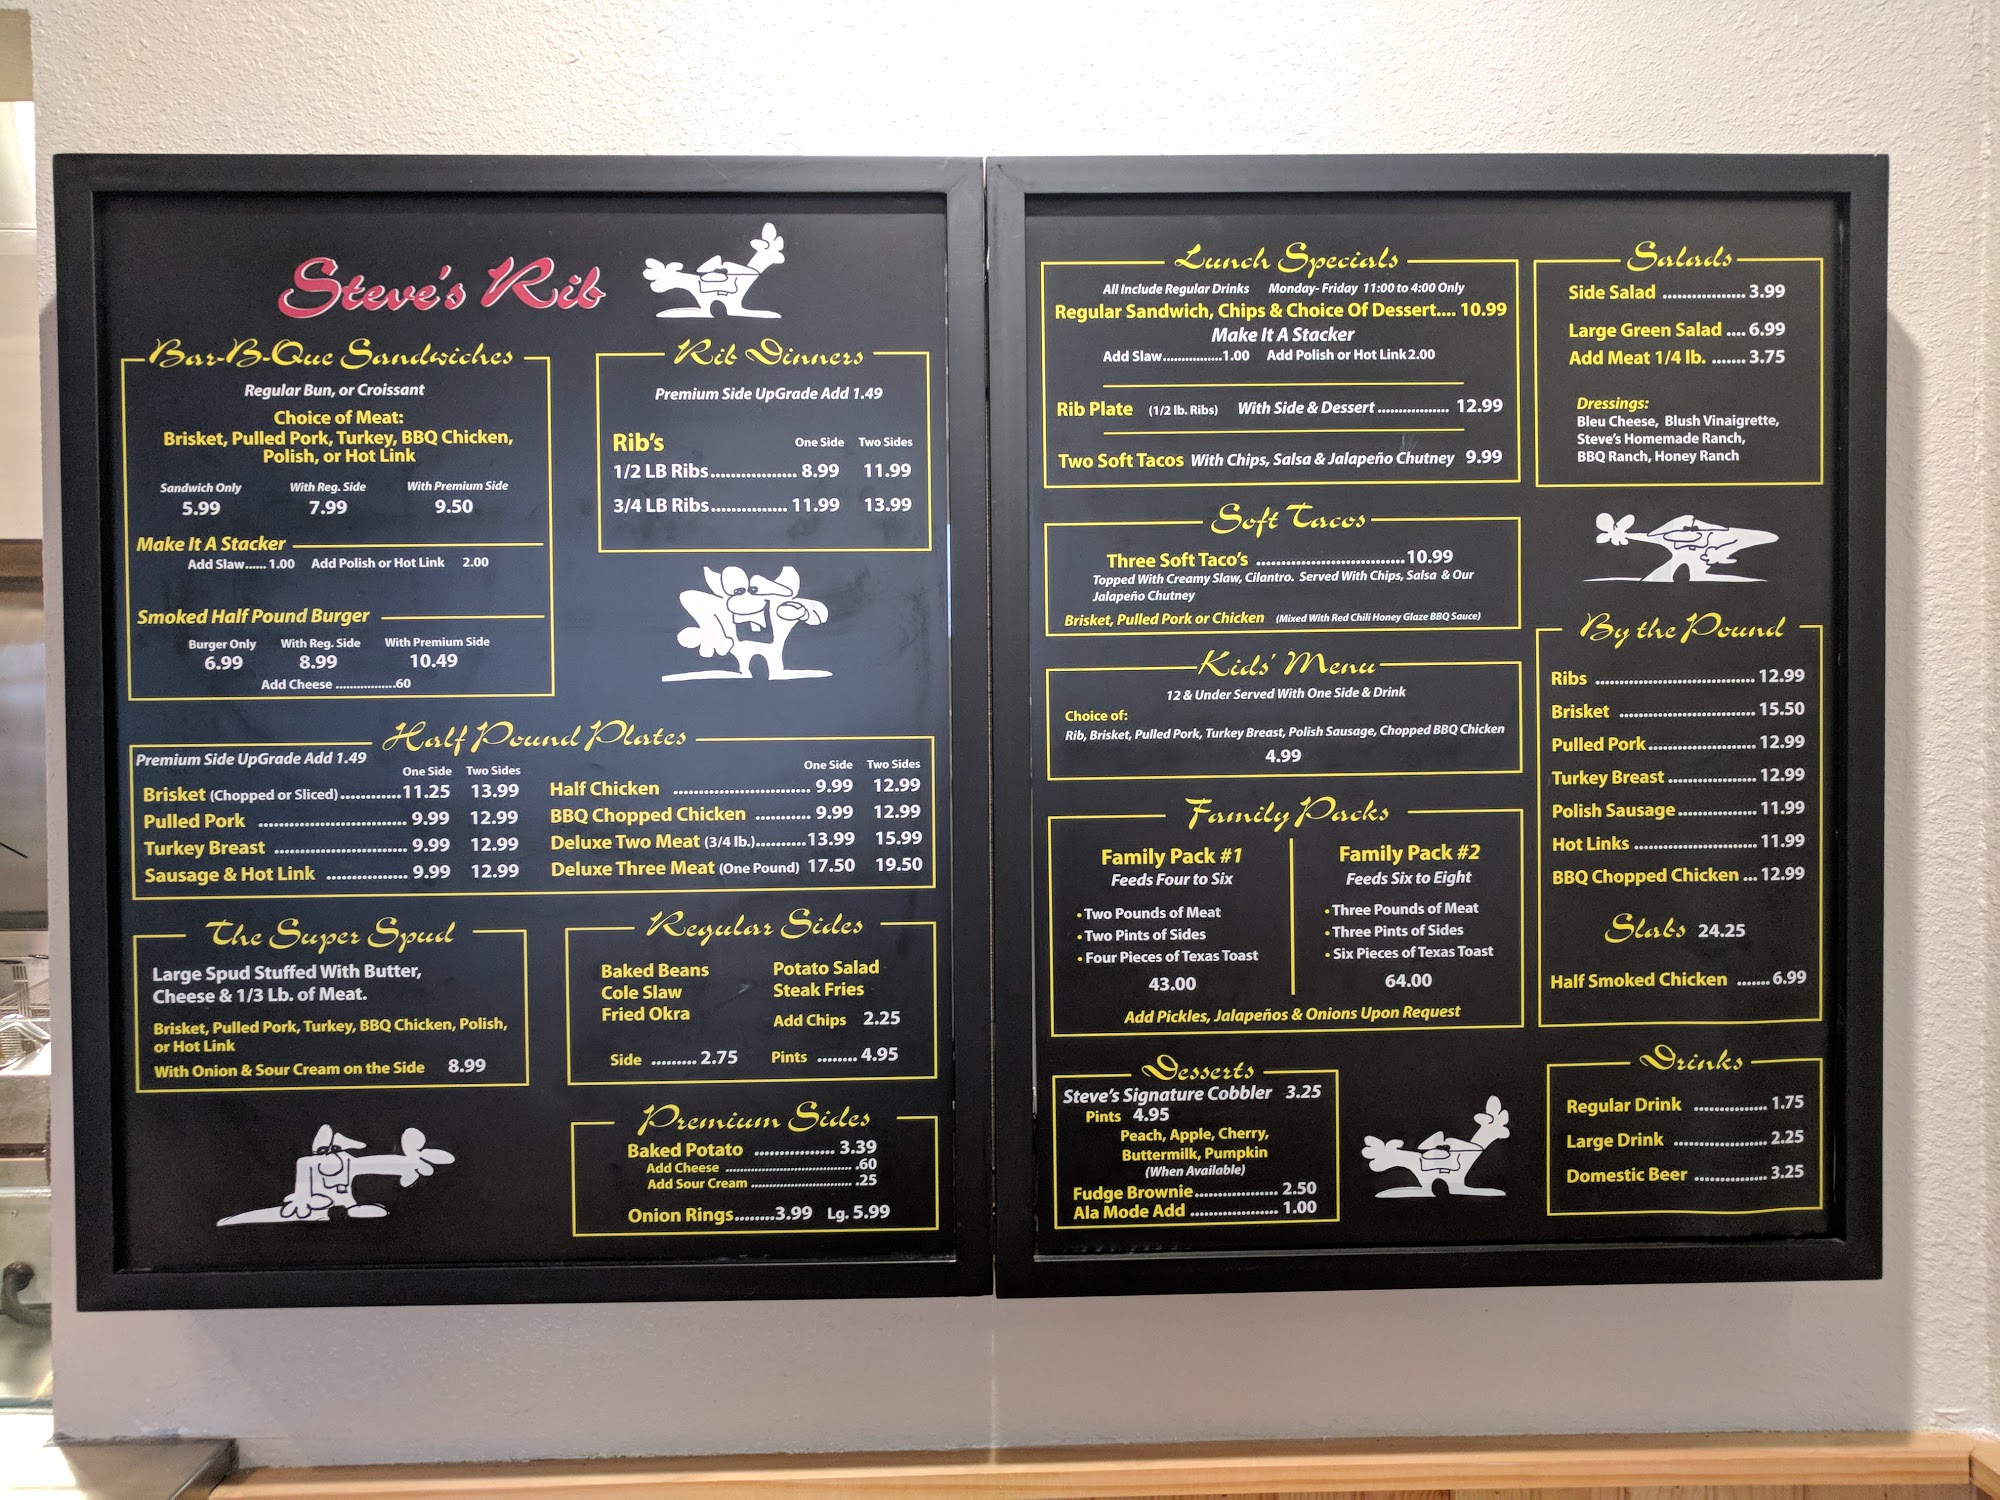 Steve's Rib
Bar-B-Que Sandwiches
Regular Bun, or Croissant
Choice of Meat:
Brisket, Pulled Pork, Turkey, BBQ Chicken,
Polish, or Hot Link
Sandwich Only With Reg. Side With Premium Side
5.99 7.99 9.50
Make It A Stacker
Add Slaw...... 1.00 Add Polish or Hot Link 2.00
Smoked Half Pound Burger
Burger Only With Reg. Side With Premium Side
6.99 8.99 10.49
Add Cheese .................60
Rib Dinners
Premium Side UpGrade Add 1.49
Rib's One Side Two Sides
1/2 LB Ribs................ 8.99 11.99
3/4 LB Ribs............... 11.99 13.99
Half Pound Plates
Premium Side UpGrade Add 1.49
One Side Two Sides
Brisket (Chopped or Sliced)............11.25 13.99
Pulled Pork ............................ 9.99 12.99
Turkey Breast ......................... 9.99 12.99
Sausage & Hot Link ............... 9.99 12.99
One Side Two Sides
Half Chicken .......................... 9.99 12.99
BBQ Chopped Chicken .......... 9.99 12.99
Deluxe Two Meat (3/4 lb.)..........13.99 15.99
Deluxe Three Meat (One Pound) 17.50 19.50
The Super Spud
Large Spud Stuffed With Butter,
Cheese & 1/3 Lb. of Meat.
Brisket, Pulled Pork, Turkey, BBQ Chicken, Polish,
or Hot Link
With Onion & Sour Cream on the Side 8.99
Regular Sides
Baked Beans Potato Salad
Cole Slaw Steak Fries
Fried Okra Add Chips 2.25
Side ......... 2.75 Pints ........ 4.95
Premium Sides
Baked Potato ............... 3.39
Add Cheese ................................ .60
Add Sour Cream ......................... .25
Onion Rings........3.99 Lg. 5.99
Lunch Specials
All Include Regular Drinks Monday- Friday 11:00 to 4:00 Only
Regular Sandwich, Chips & Choice Of Dessert.... 10.99
Make It A Stacker
Add Slaw...............1.00 Add Polish or Hot Link 2.00
Rib Plate (1/2 lb. Ribs) With Side & Dessert ................ 12.99
Two Soft Tacos With Chips, Salsa & Jalapeño Chutney 9.99
Soft Tacos
Three Soft Taco's ..............................10.99
Topped With Creamy Slaw, Cilantro. Served With Chips, Salsa & Our
Jalapeño Chutney
Brisket, Pulled Pork or Chicken (Mixed With Red Chili Honey Glaze BBQ Sauce)
Kids' Menu
12 & Under Served With One Side & Drink
Choice of:
Rib, Brisket, Pulled Pork, Turkey Breast, Polish Sausage, Chopped BBQ Chicken
4.99
Family Packs
Family Pack #1
Feeds Four to Six
• Two Pounds of Meat
• Two Pints of Sides
• Four Pieces of Texas Toast
43.00
Family Pack #2
Feeds Six to Eight
• Three Pounds of Meat
• Three Pints of Sides
• Six Pieces of Texas Toast
64.00
Add Pickles, Jalapeños & Onions Upon Request
Desserts
Steve's Signature Cobbler 3.25
Pints 4.95
Peach, Apple, Cherry,
Buttermilk, Pumpkin
(When Available)
Fudge Brownie................. 2.50
Ala Mode Add ................. 1.00
Salads
Side Salad ................. 3.99
Large Green Salad .... 6.99
Add Meat 1/4 lb. ....... 3.75
Dressings:
Bleu Cheese, Blush Vinaigrette,
Steve's Homemade Ranch,
BBQ Ranch, Honey Ranch
By the Pound
Ribs ................................ 12.99
Brisket ........................... 15.50
Pulled Pork..................... 12.99
Turkey Breast ................. 12.99
Polish Sausage............... 11.99
Hot Links ........................ 11.99
BBQ Chopped Chicken ... 12.99
Slabs 24.25
Half Smoked Chicken .......6.99
Drinks
Regular Drink ............... 1.75
Large Drink .................. 2.25
Domestic Beer .............. 3.25